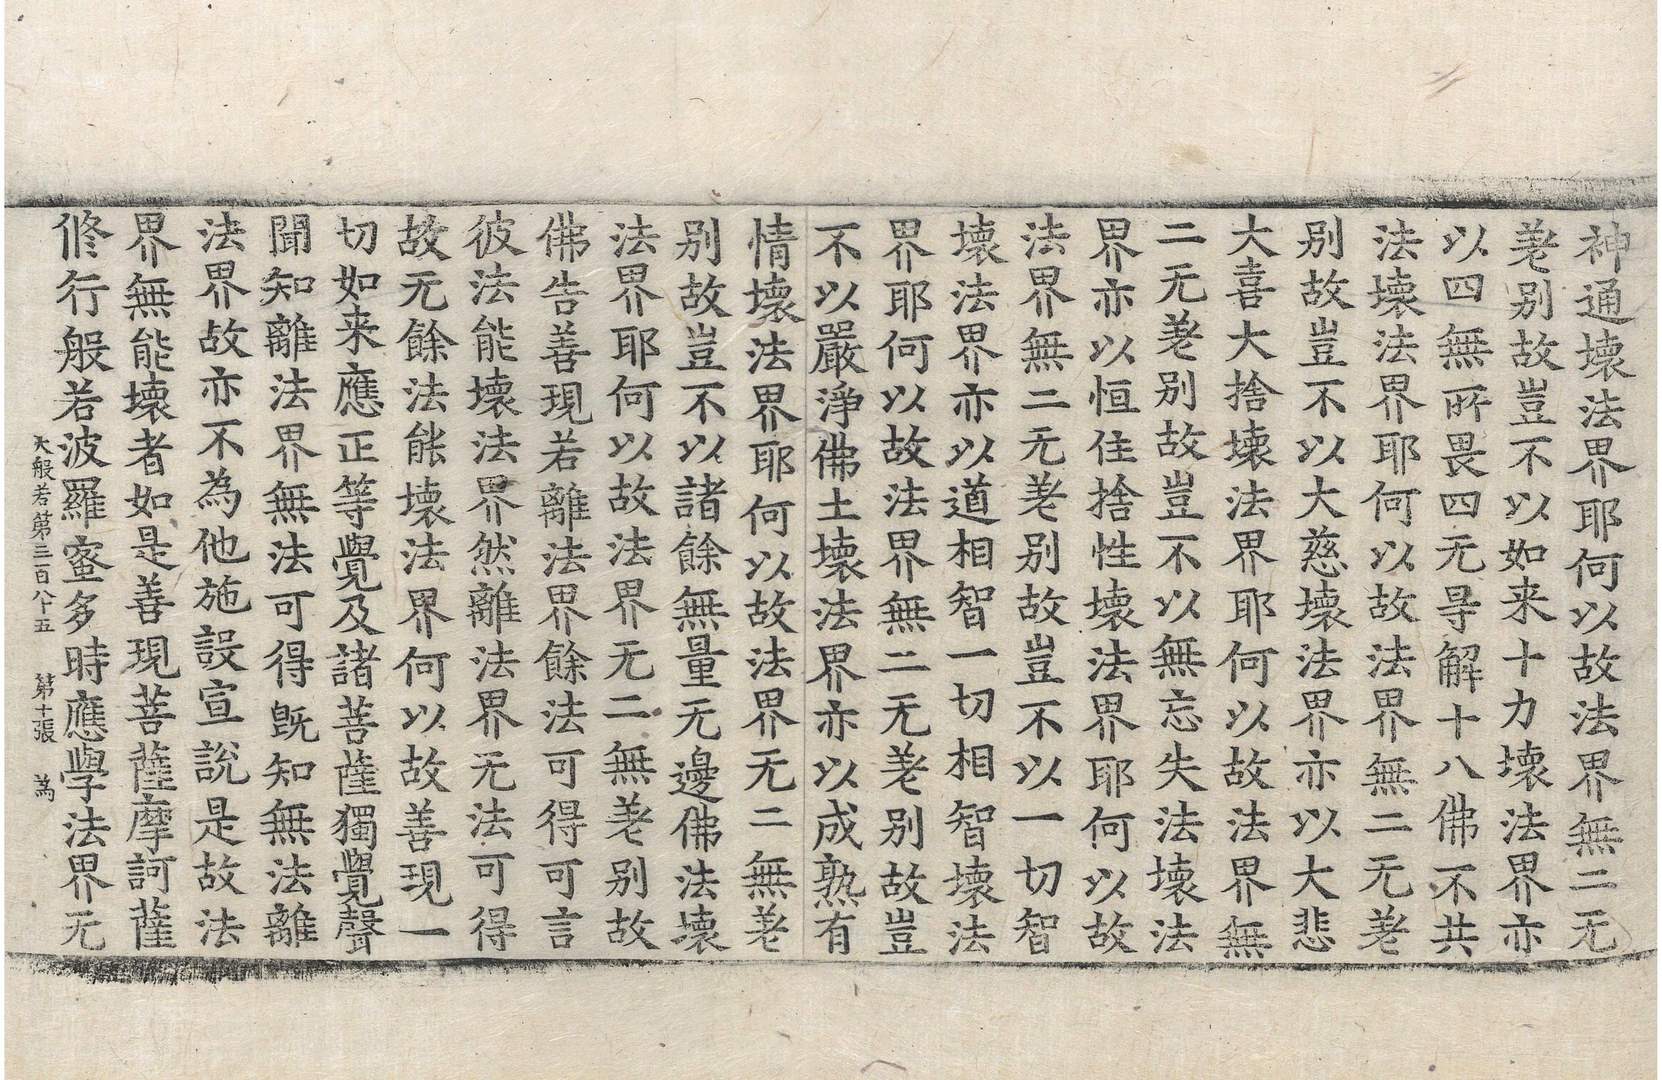 神通壞法界耶何以故法界無二无
差别故豈不以如来十力壞法界亦
以四無所畏四无㝵解十八佛不共
法壞法界耶何以故法界無二无差
别故豈不以大慈壞法界亦以大悲
大喜大捨壞法界耶何以故法界無
二无差别故豈不以無忘失法壞法
界亦以恒住捨性壞法界耶何以故
法界無二无差别故豈不以一切智
壞法界亦以道相智一切相智壞法
界耶何以故法界無二无差别故豈
不以嚴淨佛土壞法界亦以成熟有
情壞法界耶何以故法界无二無差
别故豈不以諸餘無量无邊佛法壞
法界耶何以故法界无二無差别故
佛告善現若離法界餘法可得可言
彼法能壞法界然離法界无法可得
故无餘法能壞法界何以故善現一
切如来應正等覺及諸菩薩獨覺聲
聞知離法界無法可得旣知無法離
法界故亦不為他施設宣說是故法
界無能壞者如是善現菩薩摩訶薩
修行般若波羅蜜多時應學法界无
大般若第三百八十五 第十張 為